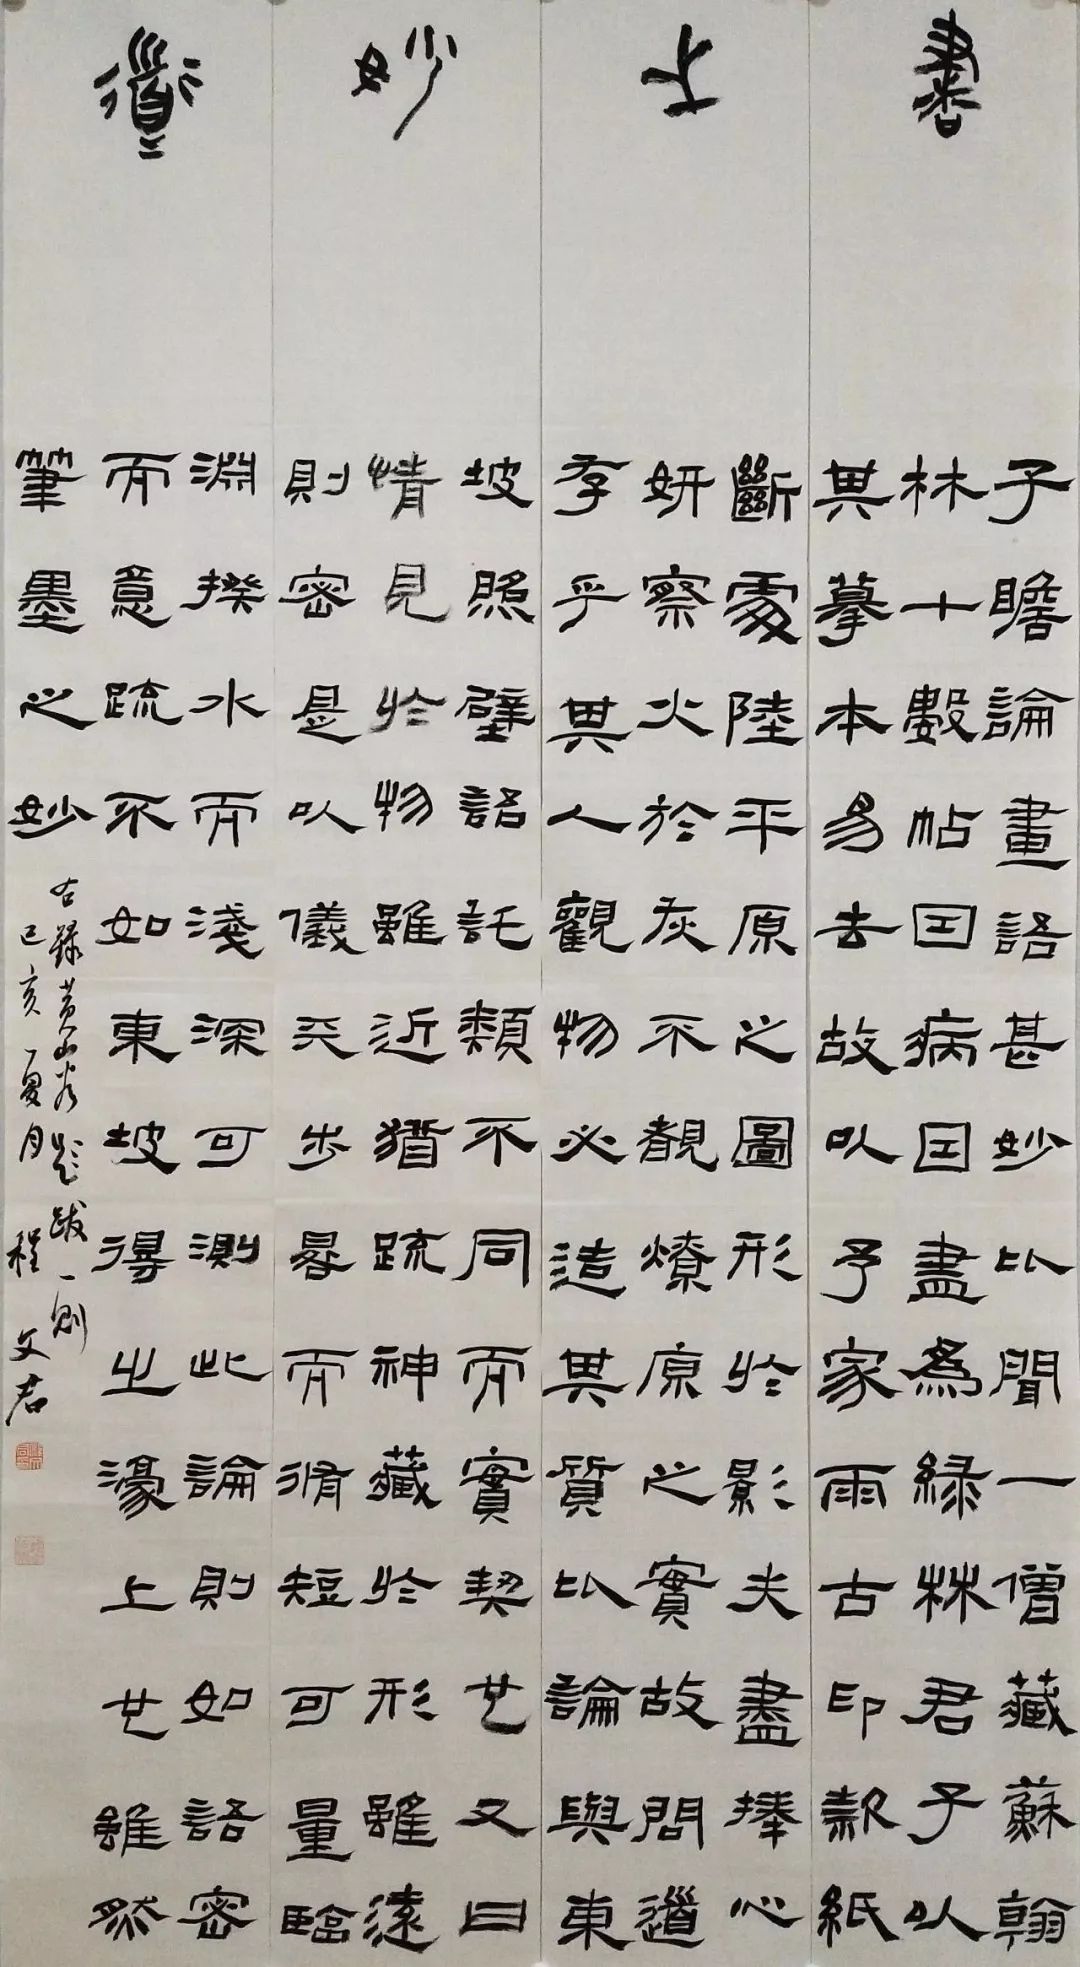 書之妙道
子瞻論畫語甚妙比聞一僧藏蘇翰
林十數帖因病因盡為綠林君子以
其摹本易去故以予家雨古印款紙
斷處陸平原之圖形於影夫盡捧心
妍察火於灰不覩燎原之實故問道
存乎其人觀物必造其質比論與東
坡照壁語託類不同而實契也又曰
情見於物雖近猶疏神藏於形雖遠
則密是以儀天步晷而脩短可量臨
淵揆水而淺深可測此論則如語密
而意疏不如東坡得之濠上也雖然
筆墨之妙
右錄黃山谷題跋一則
己亥夏月 程文君